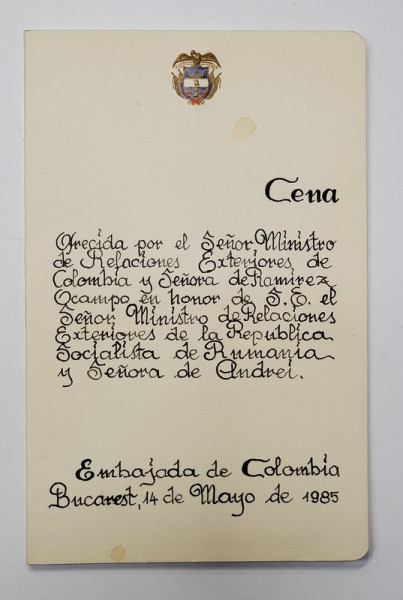 Cena
Ofrecida por el Señor Ministro
de Relaciones Exteriores de
Colombia y Señora de Ramirez
Ocampo en honor de S.E. el
Señor Ministro de Relaciones
Exteriores de la Republica
Socialista de Rumania
y Señora de Andrei.
Embajada de Colombia
Bucarest, 14 de Mayo de 1985